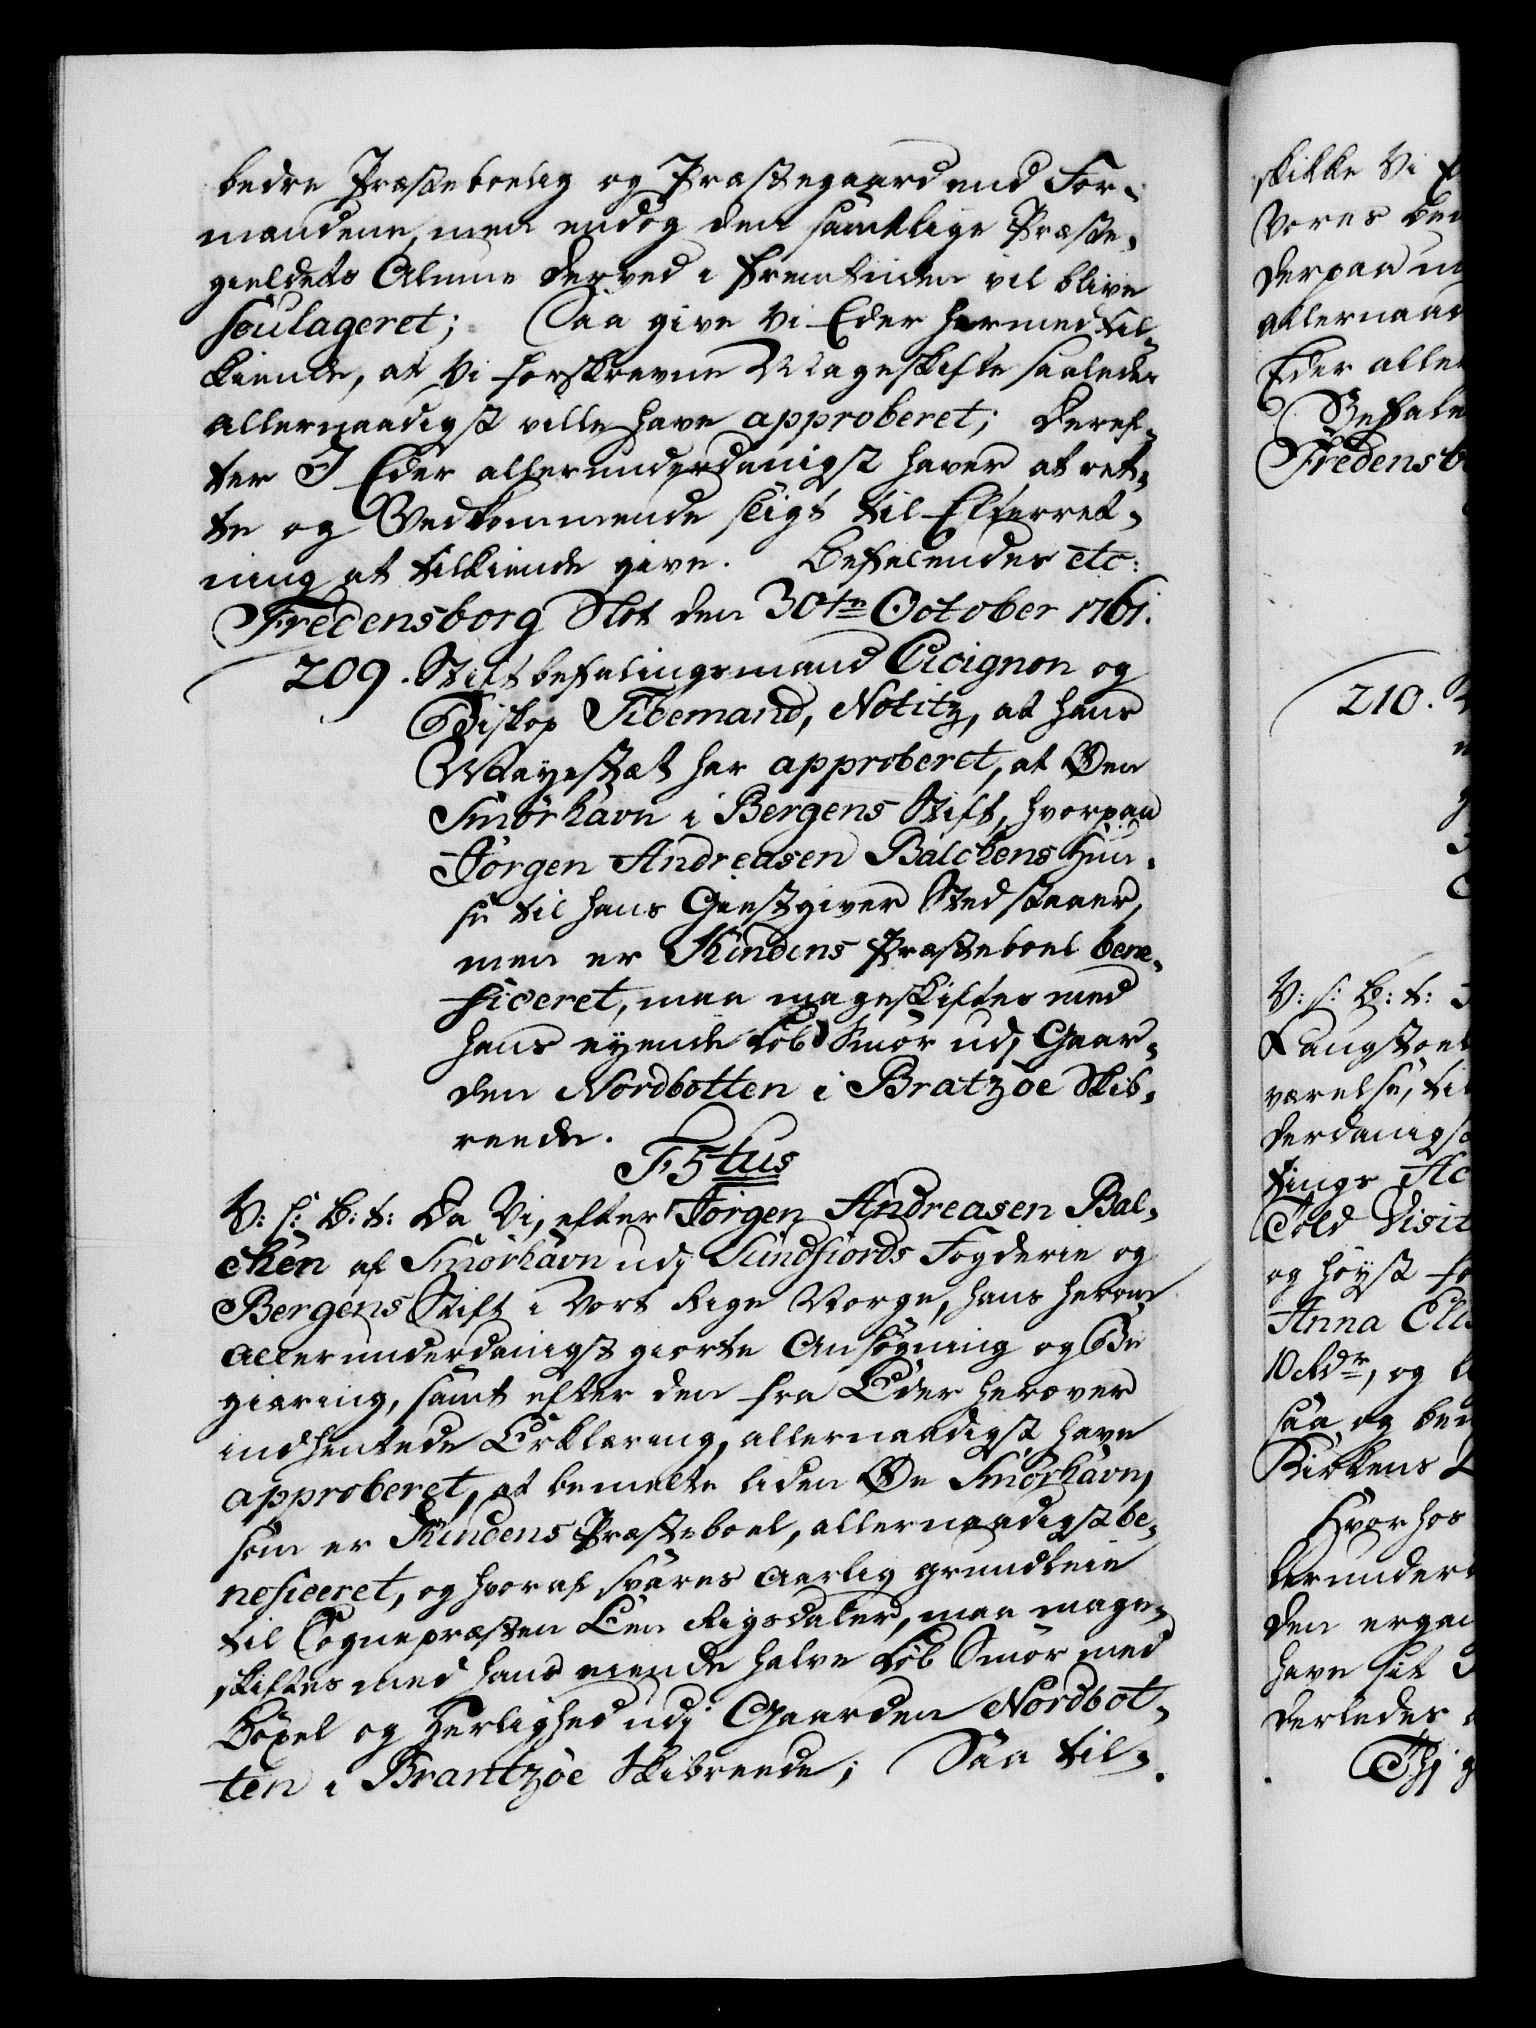 bedre Præsteboelig og Præstegaard end For-
mændene, men endog den samtlige Præste-
gieldets Almue derved i fremtiden vil blive
soulageret; Saa give Vi Eder hermed til-
kiende, at Vi forskrevne Mageskifte saaledes
allernaadigst ville have approberet; Deref-
ter I Eder allerunderdanigst haver at ret-
te og Vedkommende sligt til Efterret-
ning at tilkiende give. Befalendes etc:
Fredensborg Slot den 30te October 1761.
209. Stiftbefalingsmand Cicignon og
Biskop Tidemand, Notitz, at Hans
Mayestæt har approberet, at Øen
Smørhavn i Bergens Stift, hvorpaa
Jørgen Andreasen Balchens Huu-
se til hans Giestgiver Sted staaer,
men er Kindens Præsteboel bene-
ficeret, maa mageskiftes med
hans eyende Løb Smør udj Gaar-
den Nordbotten i Bratzøe Skib-
reede.
F 5tus
V: s: B: t: Da Vi, efter Jørgen Andreasen Bal-
chen af Smørhavn udj Sundfiords Fogderie og
Bergens Stift i Vort Rige Norge, hans herom
allerunderdanigst giorte Ansøgning og Be
giæring, samt efter den fra Eder herover
indhentede Erklæring, allernaadigst have
approberet, at bemelte liden Øe Smørhavn,
som er Kindens Præsteboel, allernaadigst be-
neficeret, og hvoraf svares aarlig grundleie
til Sognepræsten Een Rigsdaler, maa mage-
skiftes med hans eiende halve Løb Smør med
Bøxel og Herlighed udj Gaarden Nordbot-
ten i Brantzøe Skibreede; Saa til-
skikke Vi
Vores
derpaa
allernaad
Eder aller
Befale
Fredensb
210.
V: s: B: t:
værelse, ti
derdanigst
tings
Told Visit
og høyst
Anna Elis
10 Rdr, og
saa og
Kirkens
Hvorhos
lerunder
den
have sit
derledes